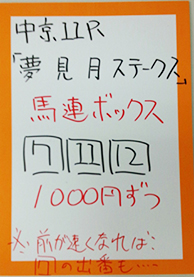 中京11R
「夢見月ステークス」
馬連ボックス
7 11 12
1000円ずつ
※前が速くなれば…
7の出番も…